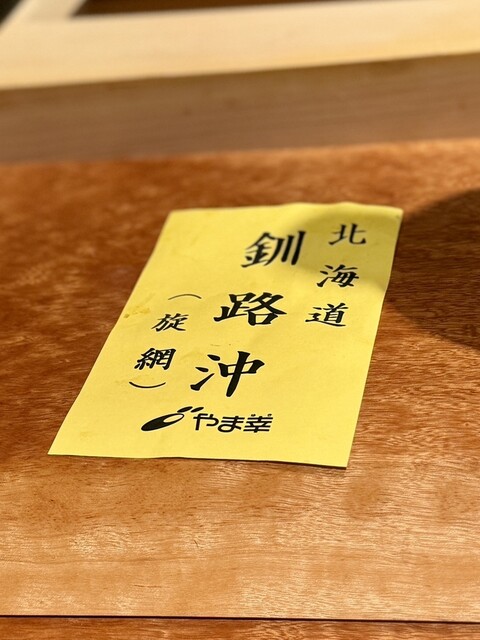 北海道
釧路沖
（旋網）
やま幸